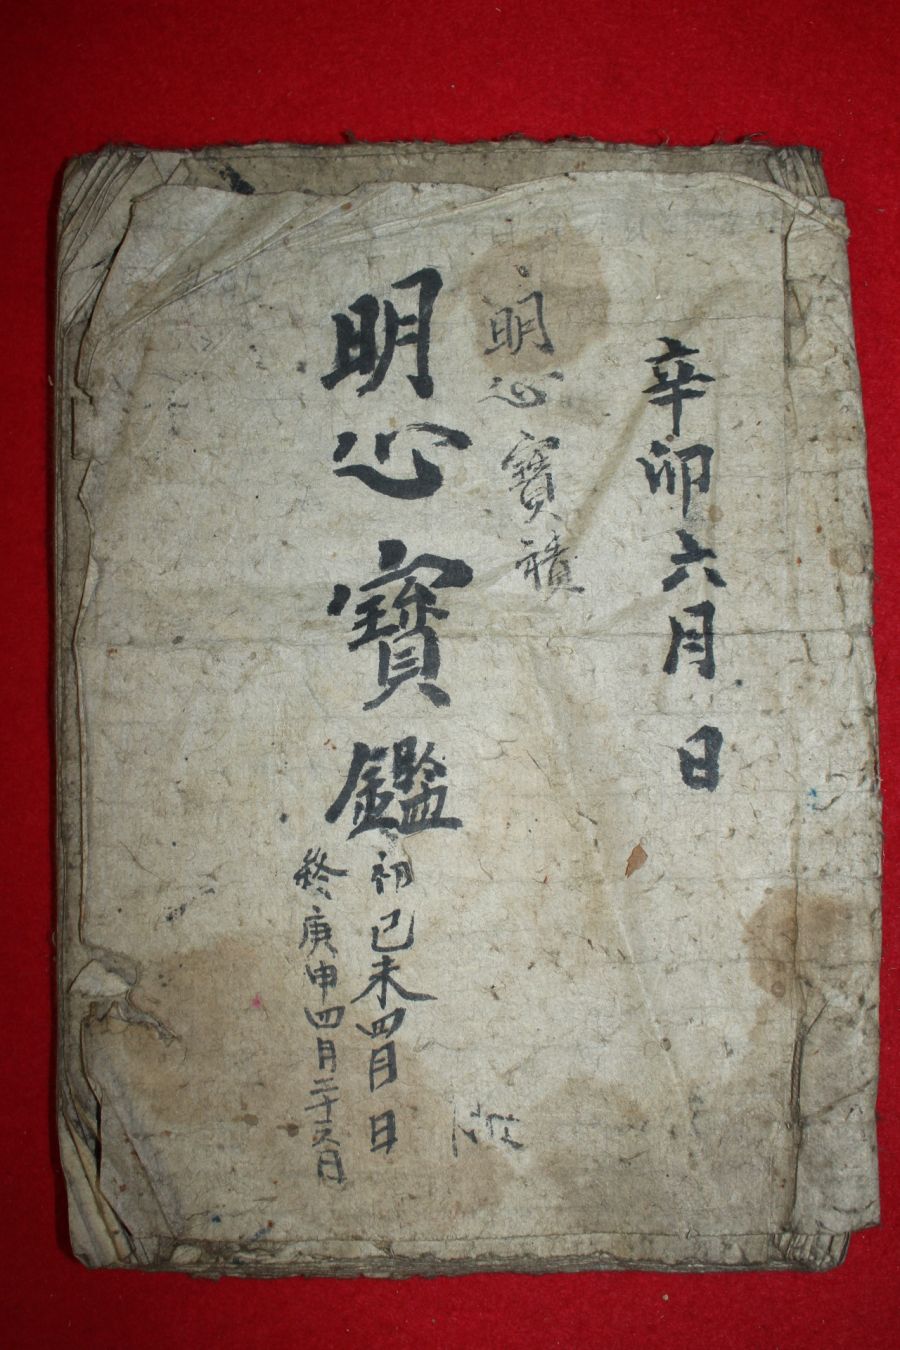 辛卯六月 日
明心寶積
明心寶鑑
初己未四月 日
終庚申四月二十五日